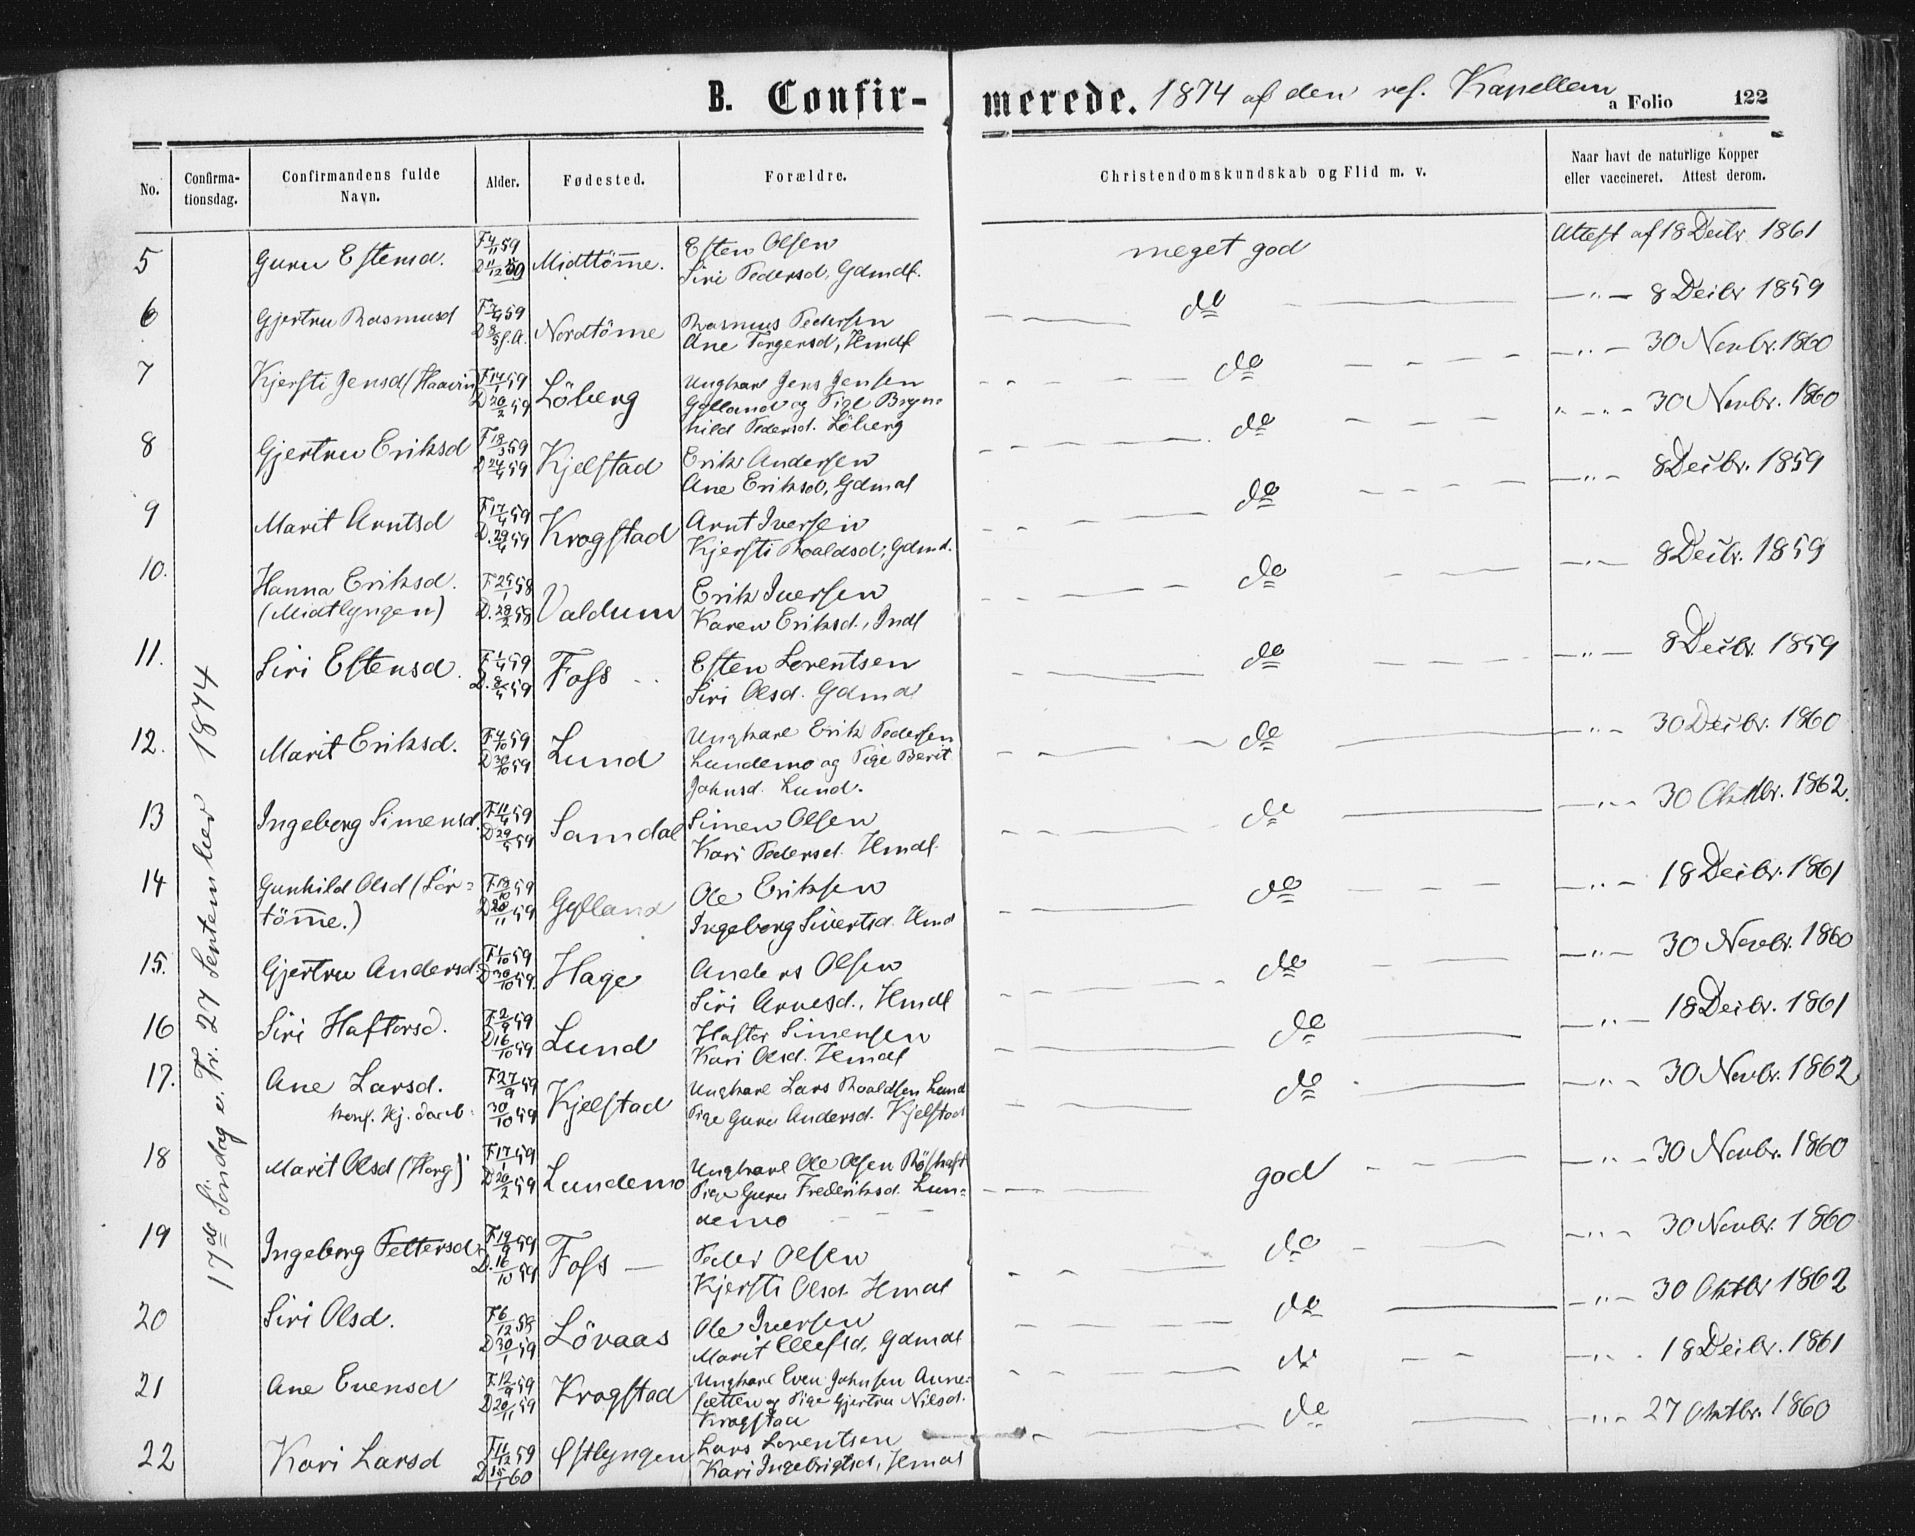 B. Confir-
merede. 1874 af den res. Kapellan
a Folio 122
No.
Confirma-
tionsdag.
Confirmandens fulde
Navn.
Alder.
Fødested.
Forældre.
Christendomskundskab og Flid m. v.
Naar havt de naturlige Kopper
eller vaccineret. Attest derom.
17de Söndag e. Tr. 27 September 1874
5 Guru Estensd. F 4/11 59 Midttömme. Esten Olsen meget god Attest af 18 Decbr. 1861
D 11/12 59 Siri Pedersd, Gdmdf.
6 Gjertru Rasmusd F 7/4 59 Nordtöme Rasmus Pedersen do — " — 8 Decbr 1859
D 8/5 s. A. Ane Torgersd, Hmdf
7 Kjersti Jensd (Haavin) F 14/1 59 Löberg Ungkarl Jens Jensen do — " — 30 Novbr. 1860
D 20/2 59 Gylland og Pige Bryn-
hild Pedersd. Löberg
8 Gjertru Eriksd F 18/3 59 Kjelstad Erik Andersen do " — " — 30 Novbr. 1860
D 24/4 59 Ane Eriksd, Gdmdf
9 Marit Arntsd F 17/4 59 Krogstad Arnt Iversen do — " — 8 Decbr. 1859
D. 29/4 59 Kjersti Roaldsd, Gdmd.
10. Hanna Eriksd. F 25/1 58 Valdum Erik Iversen do — " — 8 Decbr. 1859
(Midtlyngen) D. 28/2 58 Karen Eriksd., Indf
11. Siri Estensd. F 1/4 59 Foss Esten Lorentsen do — " — 8 Decbr. 1859
D. 8/4 59 Siri Olsd. Gdmd
12. Marit Eriksd. F 4/10 59 Lund Ungkarl Erik Pedersen do — " — 30 Decbr. 1860
D 30/10 59 Lundemo og Pige Berit
Johnsd. Lund.
13 Ingeborg Simensd. F 11/4 59 Samdal Simen Olsen do — " — 30 Oktbr. 1862.
D 29/5 59 Kari Pedersd. Hmdf.
14 Gunhild Olsd (Sör- F 19/10 59 Gylland Ole Eriksen do — " — 18 Decbr. 1861
tömme.) D 20/11 59 Ingeborg Sivertsd. Hmd
15. Gjertru Andersd. F 1/10 59 Hage Anders Olsen do — " — 30 Novbr. 1860
D 30/10 59. Siri Arnesd., Hmdf
16 Siri Haftorsd. F 2/9 59 Lund Haftor Simensen do — " — 18 Decbr. 1861
D 16/10 59 Kari Olsd. Hmdf
17. Ane Larsd. F 27/9 59 Kjelstad Ungkarl Lars Roaldsen Lund do — " — 30 Novbr. 1862
30/10 59 Pige Guru Andersd. Kjelstad
18 Marit Olsd (Horg) F 17/1 59 Lundemo Ungkarl Ole Olsen god — " — 30 Novbr. 1860
D 20/2 59 Pige Guru Frederiksd. Lun-
demo
19 Ingeborg Pettersd. F 19/9 59 Foss — Peder Olsen do — " — 30 Novbr. 1860
D. 16/10 59 Kjersti Olsd. Hmdf
20 Siri Olsd. F 6/12 58 Lövaas Ole Iversen do — " — 30 Oktbr 1862
D 30/1 59 Marit Ellefsd, Gdmdf
21 Ane Evensd F. 12/9 59 Krogstad Ungkarl Even Johnsen Anne- do — " — 18 Decbr. 1861
D 20/11 59 sætten og Pige Gjertru Nilsd.
Krogstad
22 Kari Larsd F 11/12 59 Østlyngen Lars Lorentsen do — " — 27 Oktbr. 1860
D 15/1 60 Kari Ingebrigtsd, Hmdf